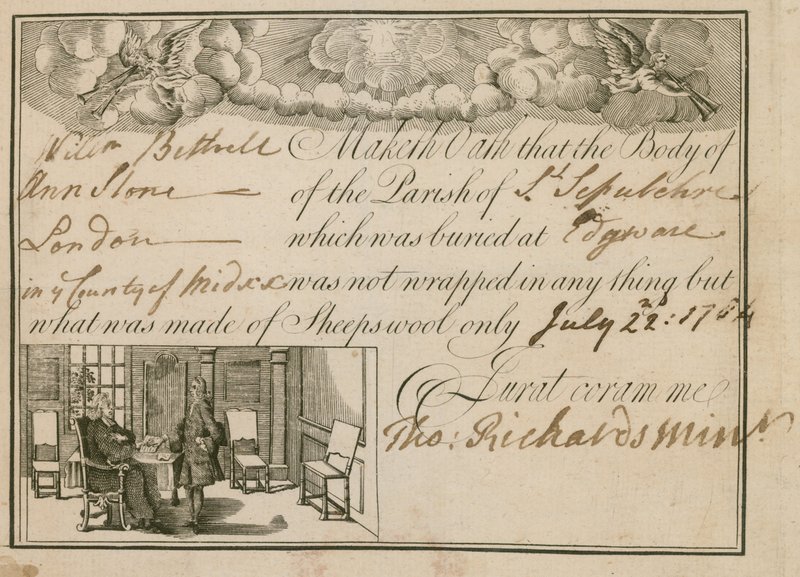 Will.m Bethell Maketh Oath that the Body of
Ann Stone of the Parish of St. Sepulchre
London which was buried at Edgware
in y County of Midxx was not wrapped in any thing but
what was made of Sheeps wool only July 22: 1764
Jurat coram me
Tho: Richards Minr.